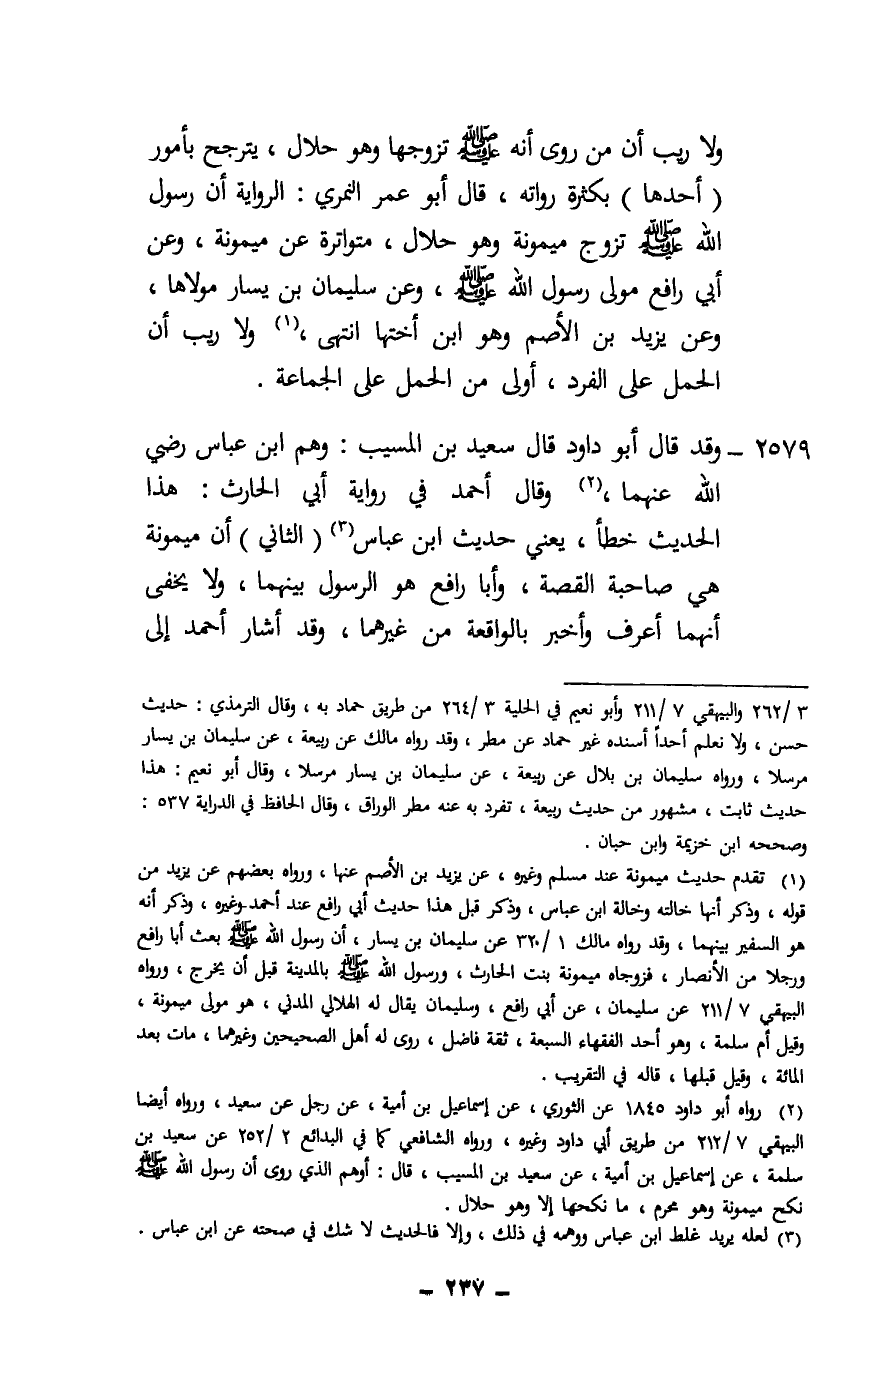 ولا ريب أن من روى أنه ﷺ تزوجها وهو حلال ، يترجح بأمور
( أحدها ) بكثرة رواته ، قال أبو عمر النمري : الرواية أن رسول
الله ﷺ تزوج ميمونة وهو حلال ، متواترة عن ميمونة ، وعن
أبي رافع مولى رسول الله ﷺ ، وعن سليمان بن يسار مولاها ،
وعن يزيد بن الأصم وهو ابن أختها انتهى ،(١) ولا ريب أن
الحمل على الفرد ، أولى من الحمل على الجماعة .
٢٥٧٩ ـ وقد قال أبو داود قال سعيد بن المسيب : وهم ابن عباس رضي
الله عنهما ،(٢) وقال أحمد في رواية أبي الحارث : هذا
الحديث خطأ ، يعني حديث ابن عباس(٣) ( الثاني ) أن ميمونة
هي صاحبة القصة ، وأبا رافع هو الرسول بينهما ، ولا يخفى
أنهما أعرف وأخبر بالواقعة من غيرهما ، وقد أشار أحمد إلى
٣ /٢٦٢ والبيهقي ٧ /٢١١ وأبو نعيم في الحلية ٣ /٢٦٤ من طريق حماد به ، وقال الترمذي : حديث
حسن ، ولا نعلم أحداً أسنده غير حماد عن مطر ، وقد رواه مالك عن ربيعة ، عن سليمان بن يسار
مرسلا ، ورواه سليمان بن بلال عن ربيعة ، عن سليمان بن يسار مرسلا ، وقال أبو نعيم : هذا
حديث ثابت ، مشهور من حديث ربيعة ، تفرد به عنه مطر الوراق ، وقال الحافظ في الدراية ٥٣٧ :
وصححه ابن خزيمة وابن حبان .
(١) تقدم حديث ميمونة عند مسلم وغيره ، عن يزيد بن الأصم عنها ، ورواه بعضهم عن يزيد من
قوله ، وذكر أنها خالته وخالة ابن عباس ، وذكر قبل هذا حديث أبي رافع عند أحمد وغيره ، وذكر أنه
هو السفير بينهما ، وقد رواه مالك ١ /٣٢٠ عن سليمان بن يسار ، أن رسول الله ﷺ بعث أبا رافع
ورجلا من الأنصار ، فزوجاه ميمونة بنت الحارث ، ورسول الله ﷺ بالمدينة قبل أن يخرج ، ورواه
البيهقي ٧ /٢١١ عن سليمان ، عن أبي رافع ، وسليمان يقال له الهلالي المدني ، هو مولى ميمونة ،
وقيل أم سلمة ، وهو أحد الفقهاء السبعة ، ثقة فاضل ، روى له أهل الصحيحين وغيرهما ، مات بعد
المائة ، وقيل قبلها ، قاله في التقريب .
(٢) رواه أبو داود ١٨٤٥ عن الثوري ، عن إسماعيل بن أمية ، عن رجل عن سعيد ، ورواه أيضا
البيهقي ٧ /٢١٢ من طريق أبي داود وغيره ، ورواه الشافعي كما في البدائع ٢ /٢٥٢ عن سعيد بن
سلمة ، عن إسماعيل بن أمية ، عن سعيد بن المسيب ، قال : أوهم الذي روى أن رسول الله ﷺ
نكح ميمونة وهو محرم ، ما نكحها إلا وهو حلال .
(٣) لعله يريد غلط ابن عباس ووهمه في ذلك ، وإلا فالحديث لا شك في صحته عن ابن عباس .
ـ ٢٣٧ ـ